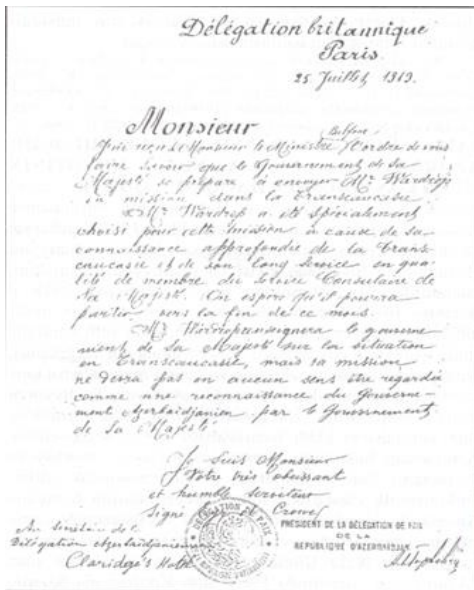 Délégation britannique
Paris.
25 Juillet, 1919.
Monsieur
Balfour
J'ai reçu de Monsieur le Ministre l'ordre de vous
faire savoir que le Gouvernement de sa
Majesté se prépare à envoyer Mr Wardrop
en mission dans la Transcaucasie.
Mr Wardrop a été spécialement
choisi pour cette mission à cause de sa
connaissance approfondie de la Trans
caucasie et de son long service en qua
lité de membre du Service Consulaire de
Sa Majesté. On espère qu'il pourra
partir vers la fin de ce mois.
Mr Wardrop renseignera le gouverne
ment de Sa Majesté sur la situation
en Transcaucasie, mais sa mission
ne devra pas en aucun sens être regardée
comme une reconnaissance du Gouverne-
ment Azerbaidjanien par le Gouvernement
de Sa Majesté.
Je suis Monsieur
Votre très obeissant
et humble serviteur
Signé Crowe
DÉLÉGATION DE PAIX
Au Secrétaire de la
Délégation Azerbaidjanienne
Claridge's Hotel
PRÉSIDENT DE LA DÉLÉGATION DE PAIX
DE LA
REPUBLIQUE D'AZERBEIDJAN